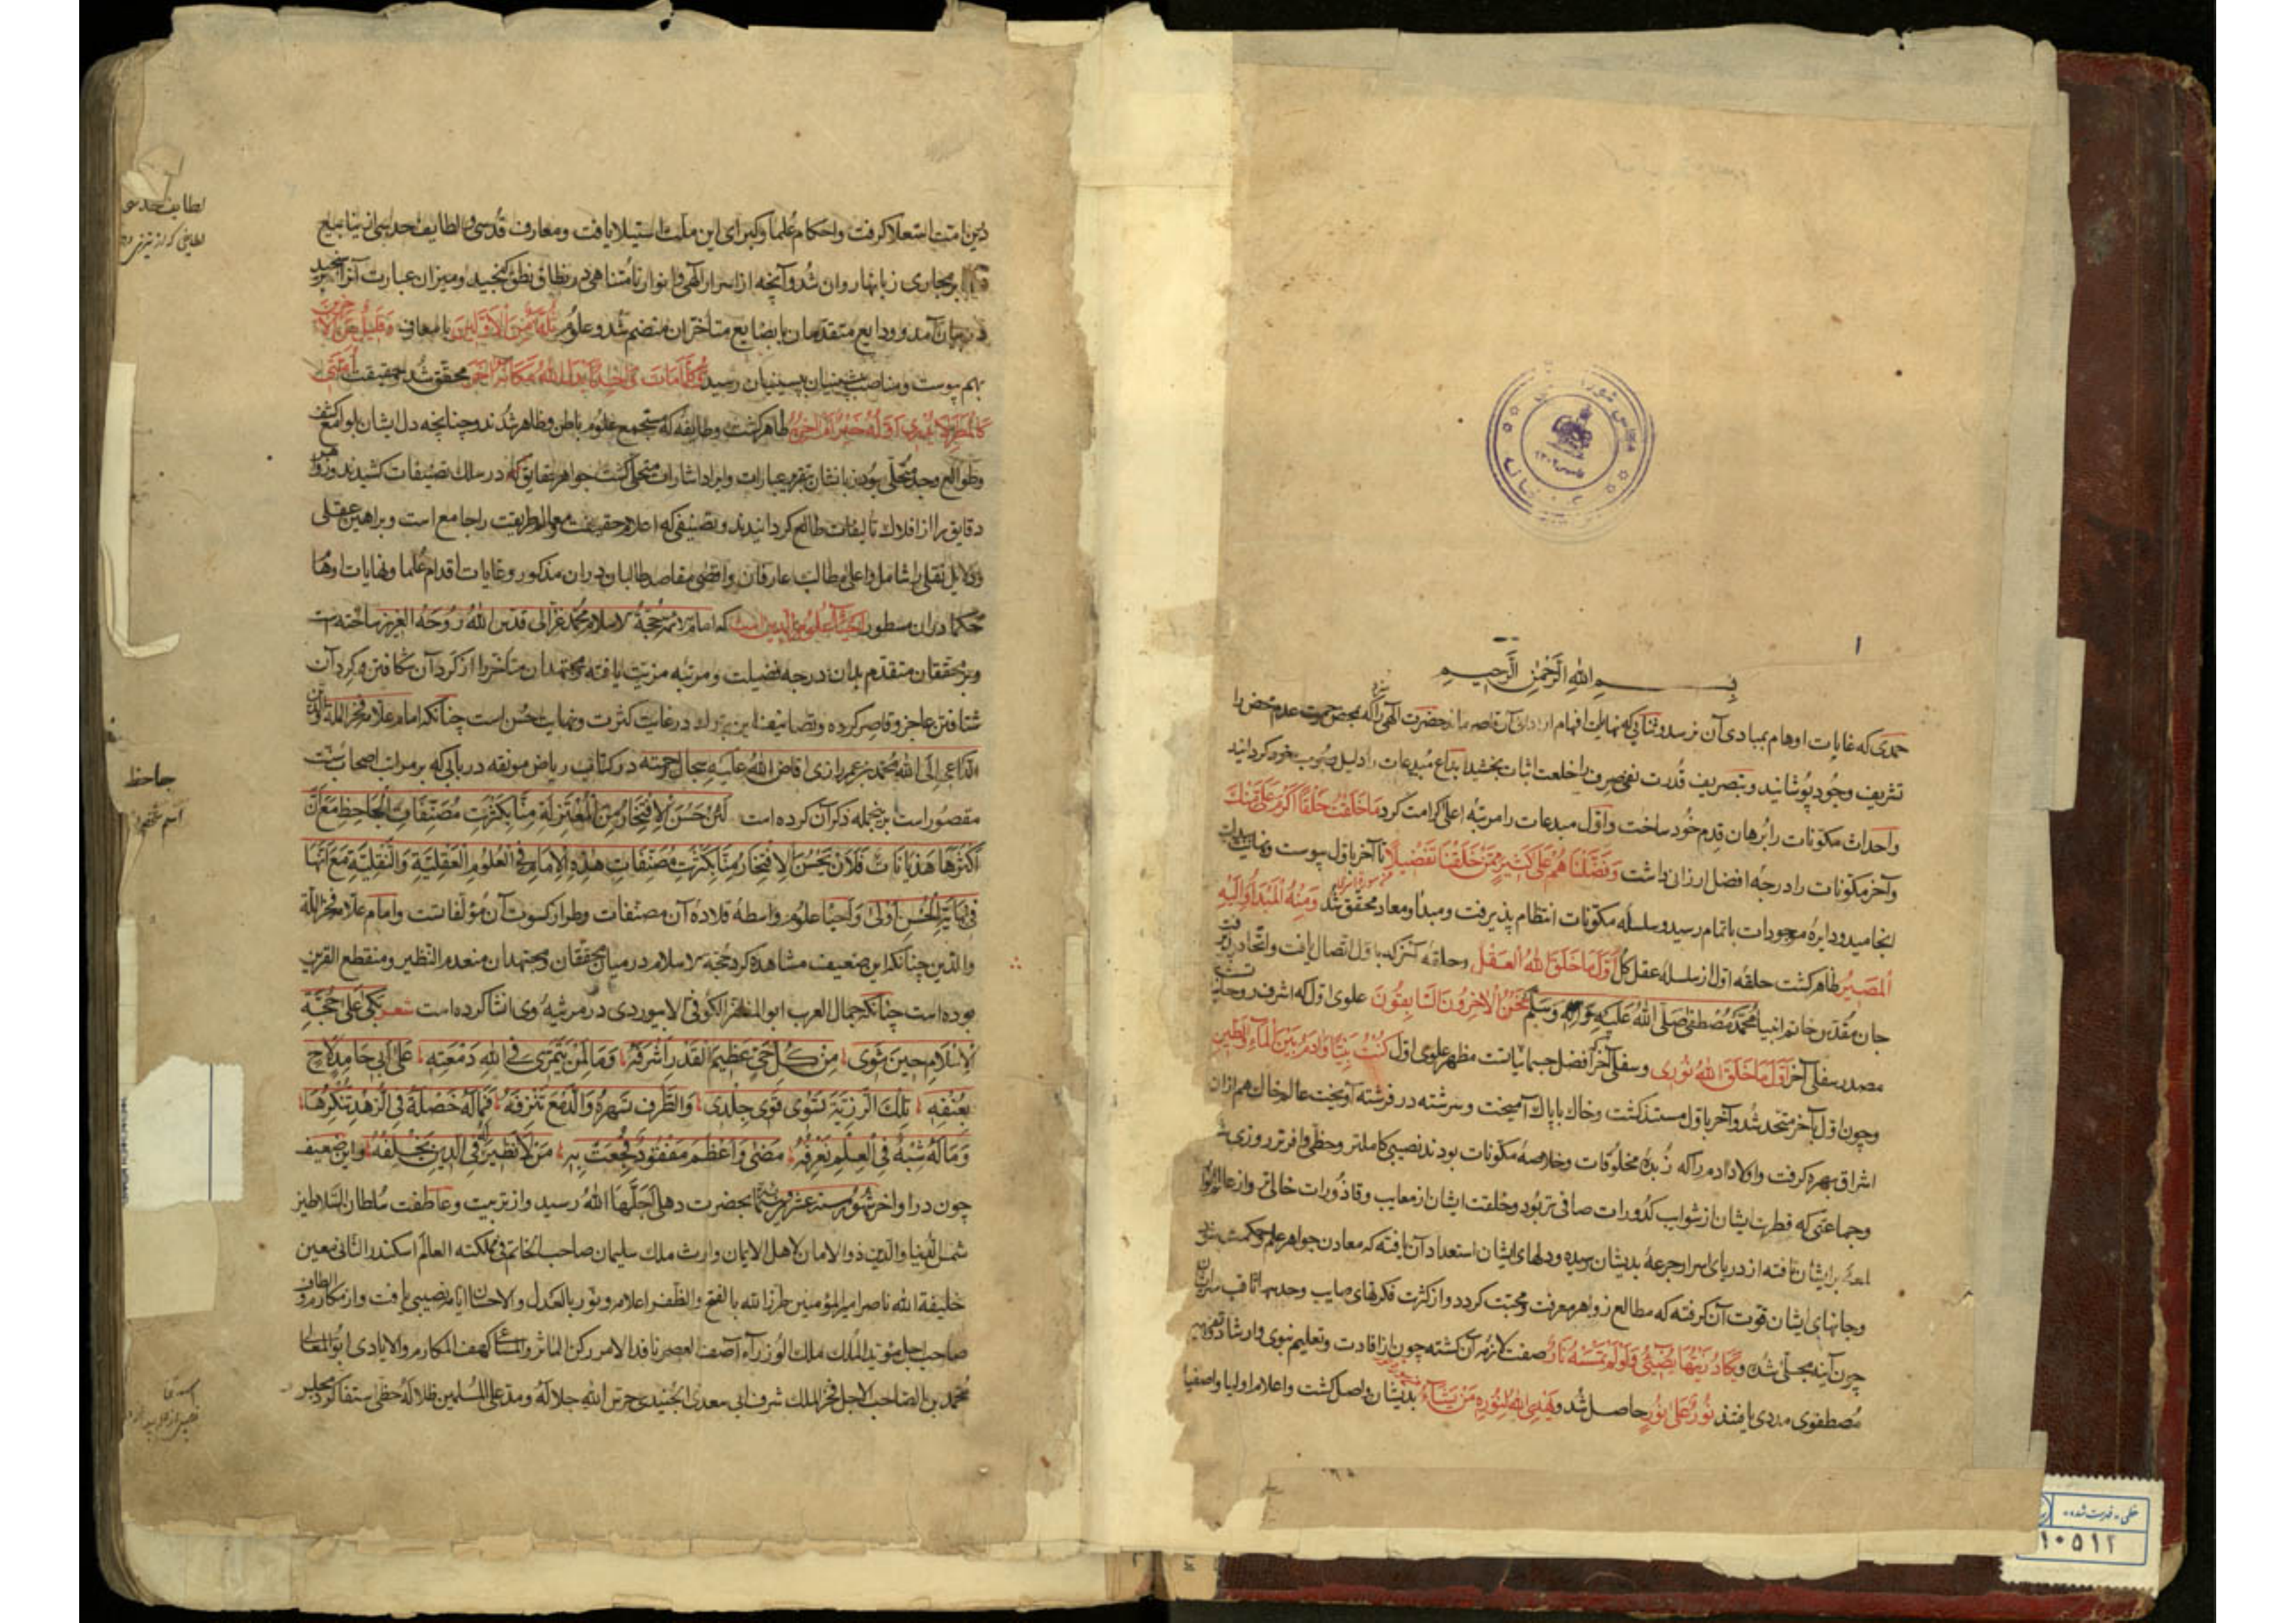 بسم الله الرحمن الرحیم
حمدی که غایات اوهام بمبادی آن نرسد و ثنایی که نهایات افهام از ادای آن قاصر ماند حضرت الهی را که بمحض عدم محض را
تشریف وجود پوشانید و بتصریف قدرت نفی صرف را خلعت اثبات بخشید ابداع مبدعات را دلیل خود کردانید
واحداث مکونات را برهان قدم خود ساخت واول مبدعات را مرتبه اعلی کرامت کرد ما خلقت خلقا اکرم علی منک
وآخر مکونات را درجه افضل ارزانی داشت وفضلناهم علی کثیر ممن خلقنا تفضیلا تا آخر باول پیوست
انجامید ودایره موجودات باتمام رسید وسلسله مکونات انتظام پذیرفت ومبدأ ومعاد محقق شد ومنه المبدأ والیه
المصیر ظاهر کشت حلقه اول از سلسله عقل کل اول ما خلق الله العقل وحلقه آخر که باول اتصال یافت واتحاد
جان مقدس خاتم انبیا محمد مصطفی صلی الله علیه وآله وسلم نحن الآخرون السابقون علوی اول که اشرف
مصدر سفلی آخر اول ما خلق الله نوری وسفلی آخر افضل جسمانیات مظهر علوی اول کنت نبیا وآدم بین الماء والطین
وچون اول بآخر متحد شد وآخر باول مستند کشت وخاک با پاک آمیخت وسرشته در فرشته آویخت عالم خاک هم ازان
اشراق بهره کرفت واولاد آدم را که زبده مخلوقات وخلاصه مکونات بودند نصیبی کاملتر وحظی وافرتر روزی
وجماعتی که فطرت ایشان از شوایب کدورات صافی تر بود وخلقت ایشان از معایب وقاذورات خالی تر واز عالم
لمعه بر ایشان تافته از دریای اسرار جرعه بدیشان رسیده ودلهای ایشان استعداد آن یافته که معادن جواهر علم وحکمت
وجانهای ایشان قوت آن کرفته که مطالع زواهر معرفت ومحبت کردد واز کثرت فکرهای صایب وحدسهای ثاقب
چون آینه مجلی شده ویکاد زیتها یضیء ولو لم تمسسه نار صفت آن کشته چون از افادت وتعلیم نبوی وارشاد
مصطفوی مددی یافتند نور علی نور حاصل شد ویهدی الله لنوره من یشاء بدیشان واصل کشت واعلام اولیا واصفیا
دین امت استعلا کرفت واحکام علما وکبرای این ملت استیلا یافت ومعارف قدسی ولطایف حدسی از ینابیع
بر مجاری زبانها روان شد وآنچه از اسرار الهی وانوار نامتناهی در نطاق نطق کنجید ومیزان عبارت آنرا
در میان آمد وودایع متقدمان با بضایع متأخران منضم شد وعلوم ثلة من الاولین با معارف وقلیل من الآخرین
بهم پیوست ومناصب پیشینیان بپسینیان رسید کلما مات واحد ابدل الله مکانه آخر محقق شد وحقیقت امتی
کالمطر لا یدری اوله خیر ام آخره ظاهر کشت وطایفه که مستجمع علوم باطن وظاهر شدند وچنانچه دل ایشان بلوامع کشف
وطوالع وجد متجلی بود زبانشان بتقریر عبارات وایراد اشارات متحلی کشت جواهر حقایق که در سلک تصنیفات کشیدند
دقایق را از افلاک تألیفات طالع کردانیدند وتصنیفی که اعلام حقیقت ومعالم طریقت را جامع است وبراهین عقلی
ودلایل نقلی را شامل واعلی مطالب عارفان واقصی مقاصد طالبان دران مذکور وغایات اقدام علما ونهایات
حکما دران مسطور احیاء علوم الدین است که امام حجة الاسلام محمد غزالی قدس الله روحه العزیز ساخته است
وبر محققان متقدم بدان درجه فضیلت ومرتبه مزیت یافته ومجتهدان متأخر را از
شتافتن عاجز وقاصر کرده وتصانیف این بزرک در غایت کثرت ونهایت حسن است چنانکه امام علامه فخر الملة والدین
الداعی الی الله محمد بن عمر رازی افاض الله علیه سجال رحمته در کتاب ریاض مونقه در بابی که بر
مقصور است بر جمله ذکر آن کرده است لئن حسن الافتخار من المعتزلة منا بکثرت مصنفات الجاحظ مع ان
اکثرها هذیانات فلان یحسن الافتخار منا بکثرت مصنفات هذه الامام فی العلوم العقلیة والنقلیة مع انها
فی نهایة الحسن اولی واحیاء علوم واسطه قلاده آن مصنفات وطراز کسوت آن مؤلفاتست وامام علامه فخر الملة
والدین چنانکه این ضعیف مشاهده کرد حجة الاسلام در میان محققان ومجتهدان منعدم النظیر ومنقطع القرین
بوده است چنانکه جمال العرب ابو المظفر الکوفی الابیوردی در مرثیه وی انشا کرده است شعر بکی علی حجة
الاسلام حین ثوی من کل حی عظیم القدر اشرفه وما لمن یمتری فی الله دمعته علی ابی حامد لاح
یعنفه تلک الرزیة تستوی قوی جلدی والطرف تسهره والدمع تنزفه فماله خصلة فی الزهد تنکرها
وماله شبه فی العلم نعرفه مضی واعظم مفقود فجعت به من لا نظیر له فی الدین یخلفه واین ضعیف
چون در اواخر شهور سنه عشر بحضرت دهلی اجلها الله رسید واز تربیت وعاطفت سلطان السلاطین
شمس الدنیا والدین ذو الامان لاهل الایمان وارث ملک سلیمان صاحب الخاتم فی مملکته العالم اسکندر الثانی معین
خلیفة الله ناصر امیر المؤمنین طرز الله بالفتح والظفر اعلامه ونور بالعدل والاحسان ایامه نصیبی یافت واز مکارم
صاحب اجل مؤید الملک ملک الوزراء آصف العصر نافذ الامر رکن المآثر والمساعی کهف المکارم والایادی ابو المعالی
محمد بن الصاحب الاجل فخر الملک شرف ابی سعدی الجنیدی حرس الله جلاله ومد علی المسلمین ظلاله حظی
جاحظ
اسم شخص
۱۰۵۱۲